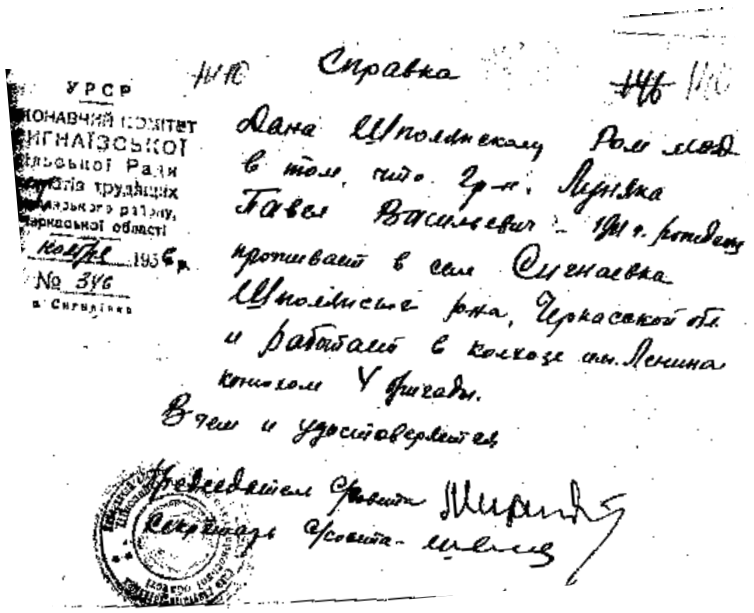 Справка
УРСР
КОНАВЧИЙ КОМІТЕТ
ИГНАЇВСЬКОЇ
ільської Ради
трудящих
району,
Черкаської області
ноября 1956 р.
№ 346
с. Сигнаївка
146
Дана Шполянскому
в том, что гр-н. Луняка
Павел Васильевич - 1911 г. рождения
проживает в селе Сигнаевка
Шполянского р-на, Черкасской обл.
и работает в колхозе им. Ленина
конюхом V бригады.
В чем и удостоверяется
Председатель с/совета
Секретарь с/совета -